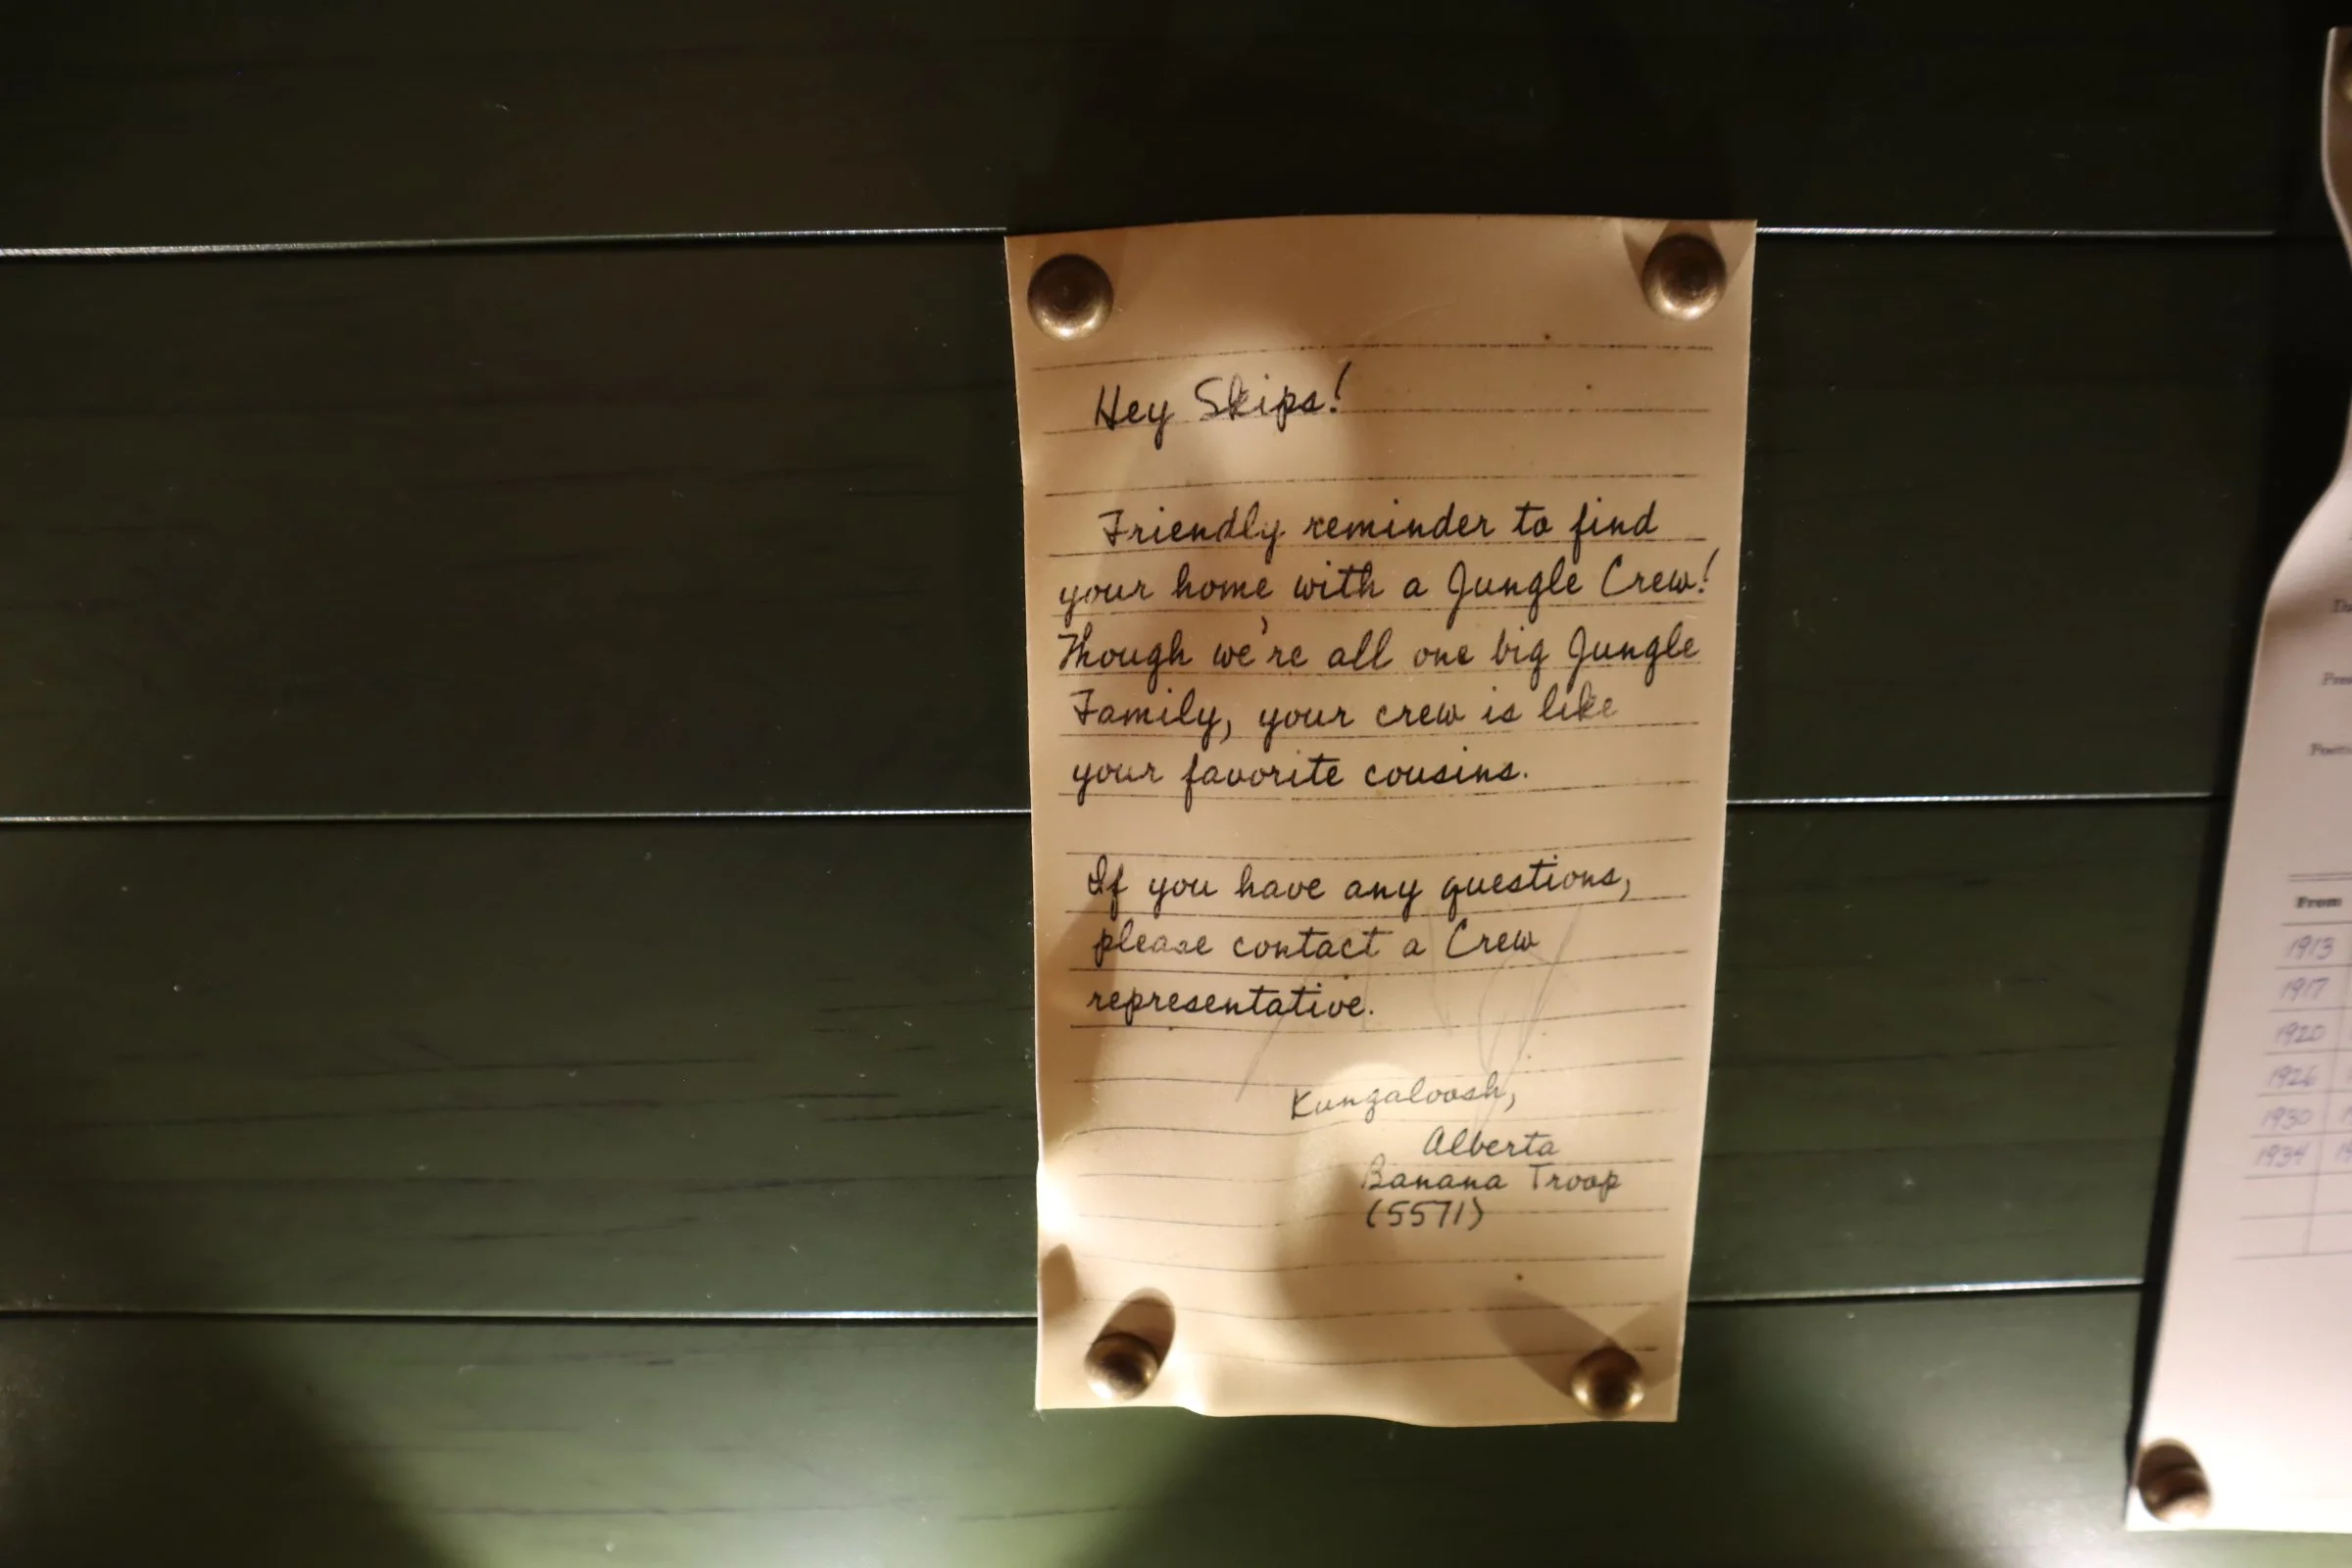 Hey Skips!
Friendly reminder to find
your home with a Jungle Crew!
Though we're all one big Jungle
Family, your crew is like
your favorite cousins.
If you have any questions,
please contact a Crew
representative.
Kungaloosh,
Alberta
Banana Troop
(5571)
From
1913
1917
1920
1926
1930
1934